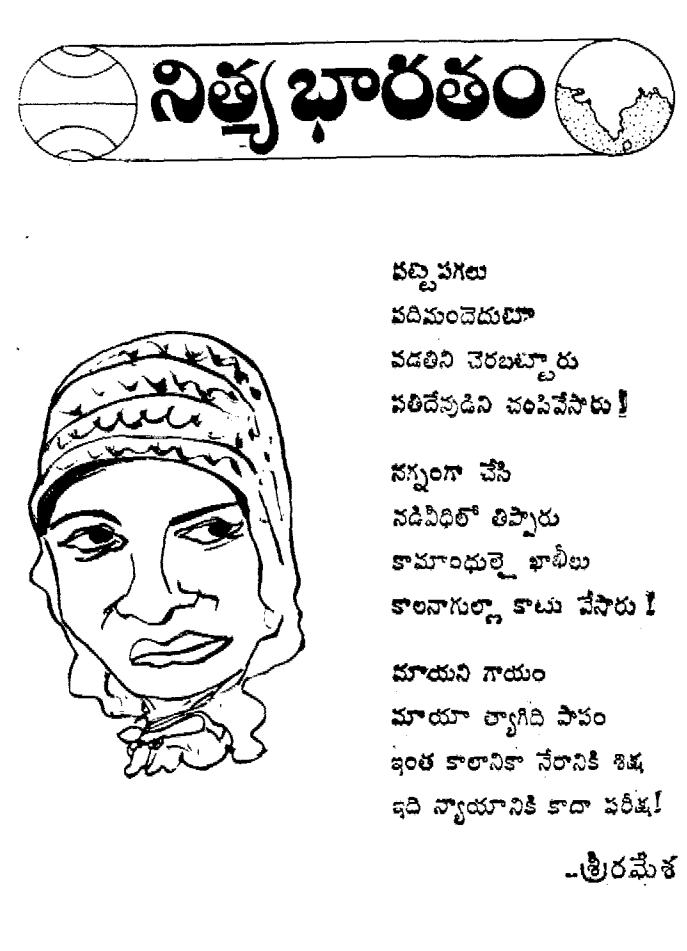 నిత్య భారతం
పట్టపగలు
పదిమందెదుటా
పడతిని చెరబట్టారు
పతిదేవుడిని చంపివేసారు !
నగ్నంగా చేసి
నడివీధిలో తిప్పారు
కామాంధులై ఖాఖీలు
కాలనాగుల్లా కాటు వేసారు !
మాయని గాయం
మాయా త్యాగిది పాపం
ఇంత కాలానికా నేరానికి శిక్ష
ఇది న్యాయానికి కాదా పరీక్ష!
--శ్రీరమేశ